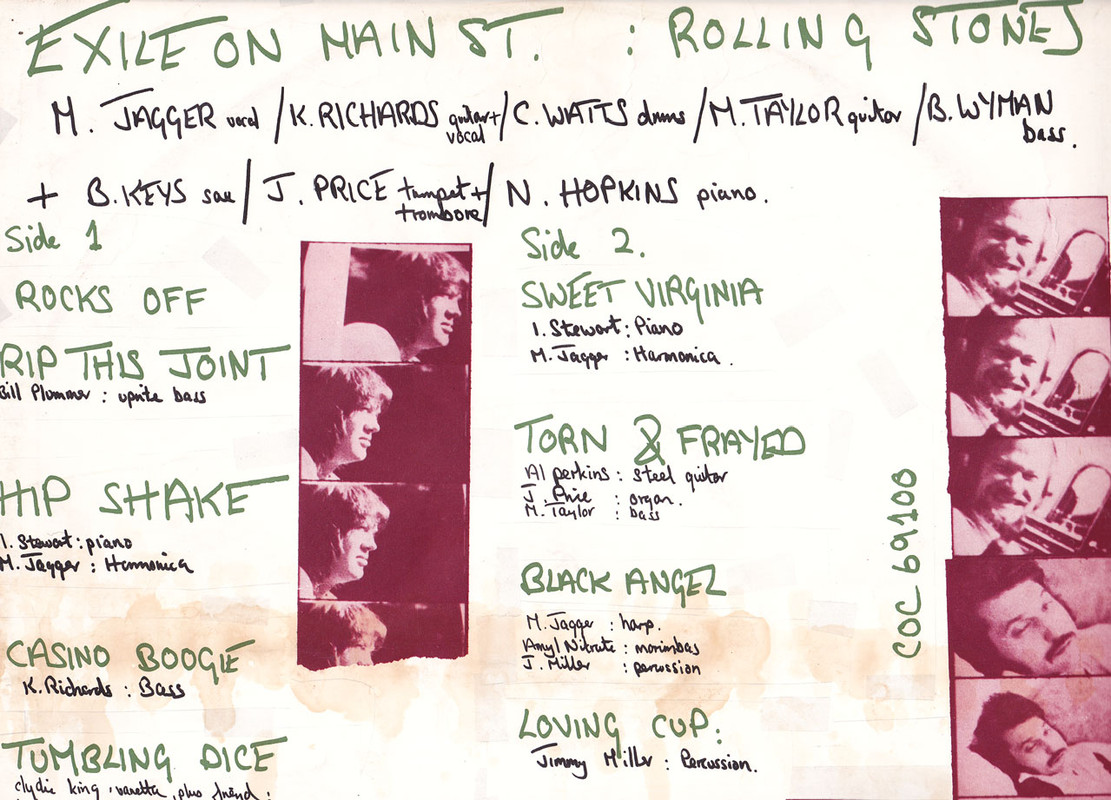 EXILE ON MAIN ST. : ROLLING STONES
M. JAGGER vocal / K. RICHARDS guitar + vocal / C. WATTS drums / M. TAYLOR guitar / B. WYMAN bass.
+ B. KEYS sax / J. PRICE trumpet + trombone / N. HOPKINS piano.
Side 1
ROCKS OFF
RIP THIS JOINT
Bill Plummer : uprite bass
HIP SHAKE
I. Stewart : piano
M. Jagger : Harmonica
CASINO BOOGIE
K. Richards : Bass
TUMBLING DICE
clydie king, vanetta, plus friend :
Side 2.
SWEET VIRGINIA
I. Stewart : Piano
M. Jagger : Harmonica.
TORN & FRAYED
Al perkins : steel guitar
J. Price : organ.
M. Taylor : bass
BLACK ANGEL
M. Jagger : harp.
Amyl Nitrate : marimbas
J. Miller : percussion
LOVING CUP :
Jimmy Miller : Percussion.
COC 69100